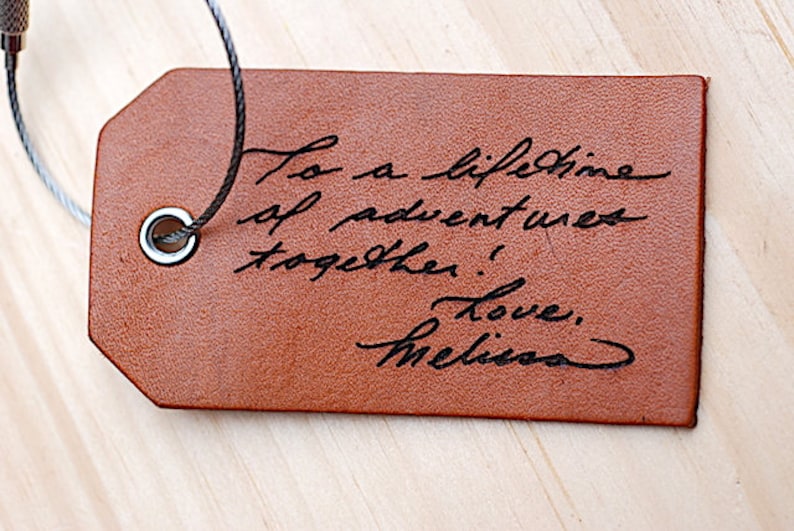 To a lifetime
of adventures
together!
Love,
Melissa